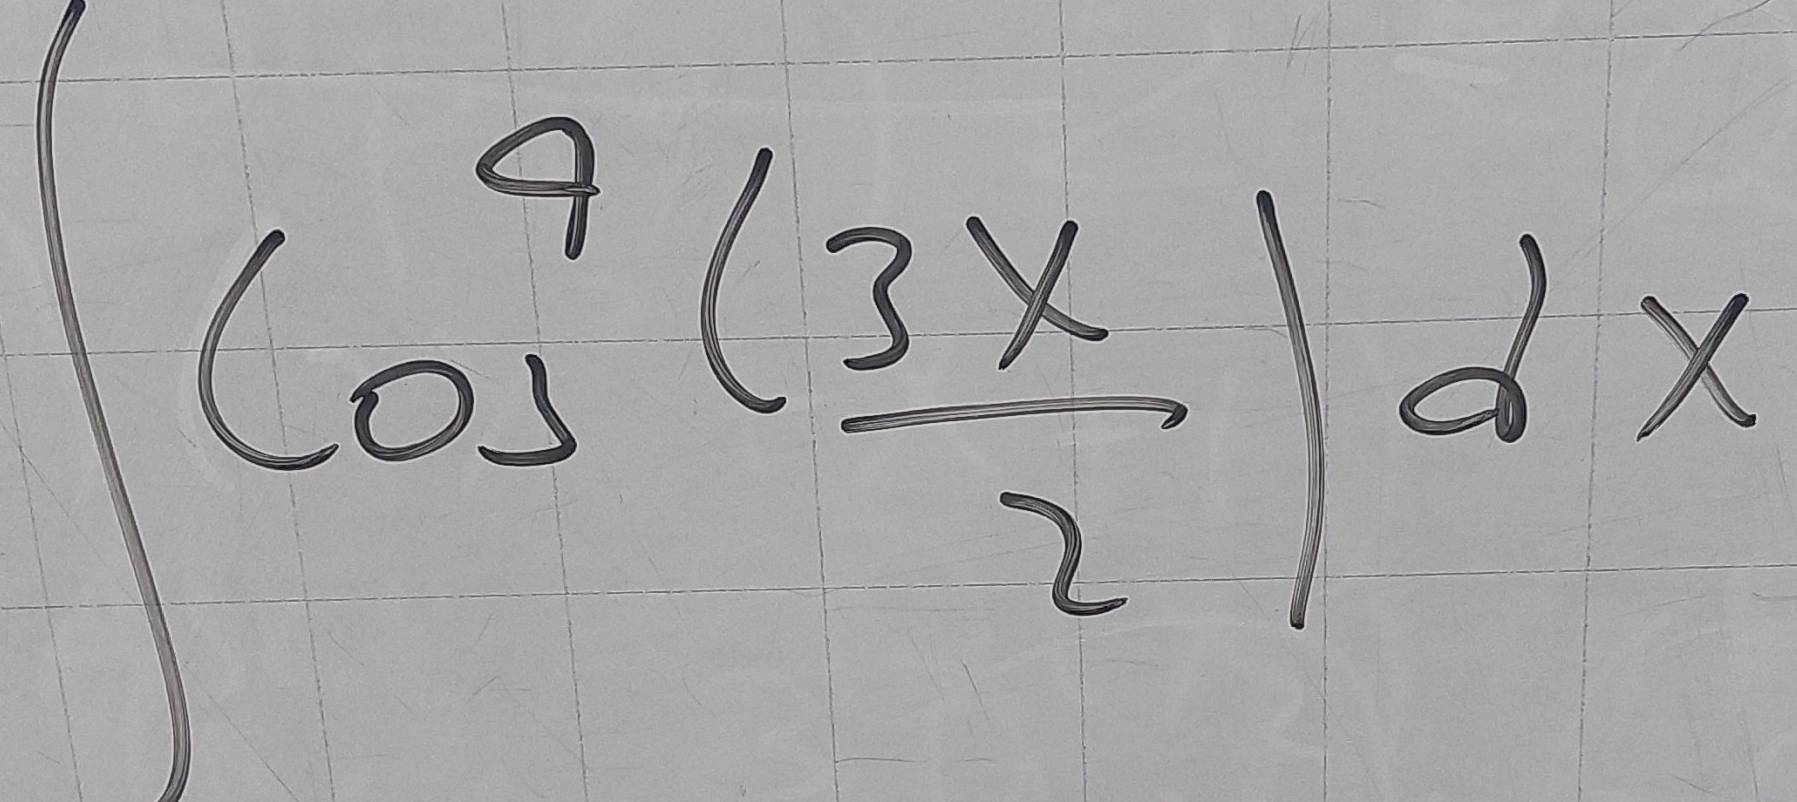 ∫ cos⁴ (3x/2) dx